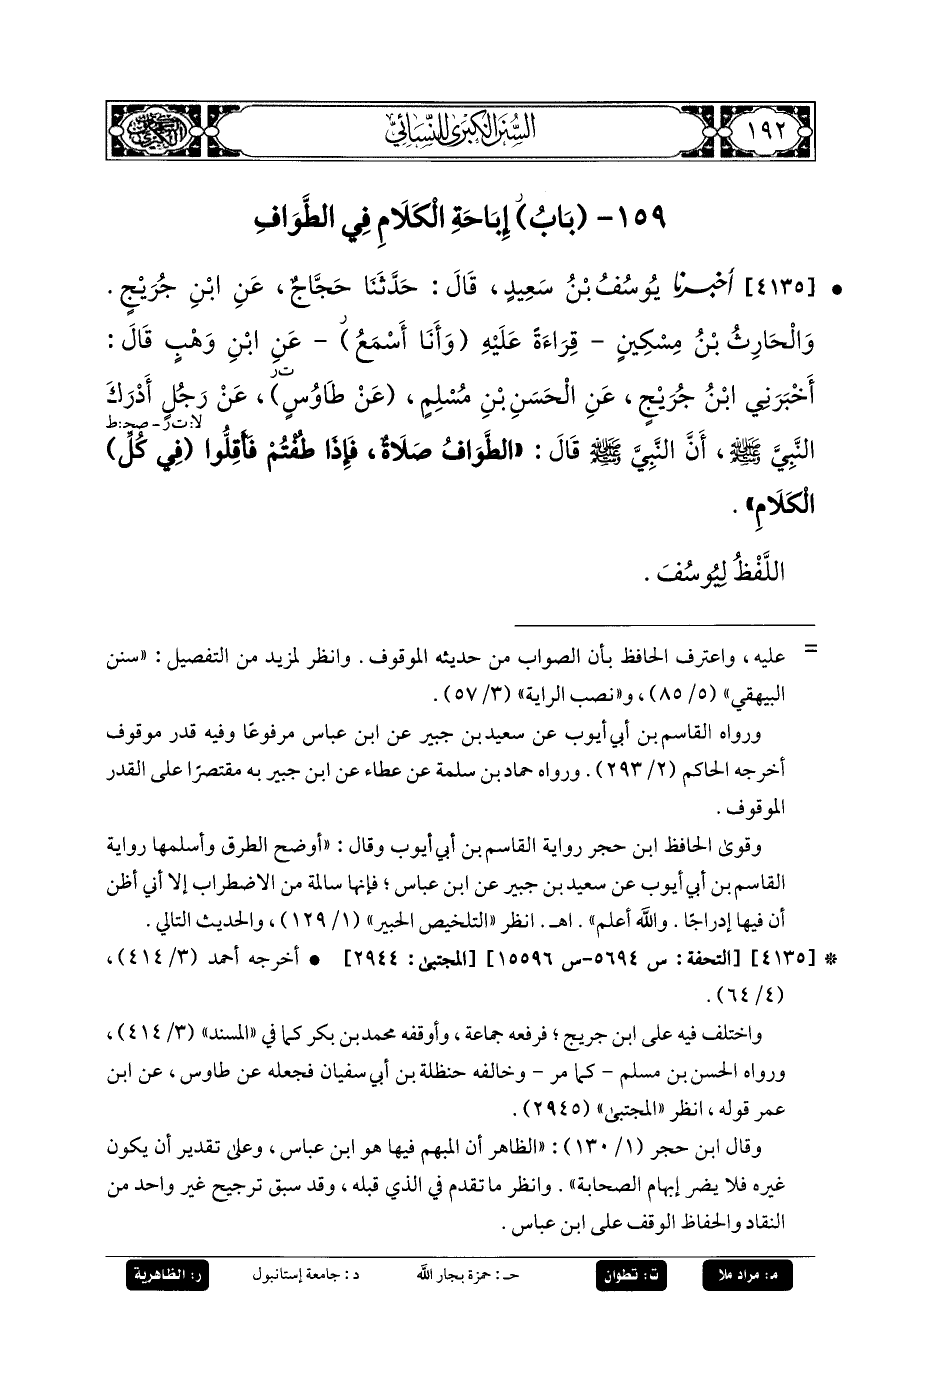 ١٩٢
السنن الكبرى للنسائي
١٥٩- (بَابُ) إِبَاحَةِ الْكَلَامِ فِي الطَّوَافِ
ر
• [٤١٣٥] أخبرنا يُوسُفُ بْنُ سَعِيدٍ، قَالَ: حَدَّثَنَا حَجَّاجٌ، عَنِ ابْنِ جُرَيْجٍ.
وَالْحَارِثُ بْنُ مِسْكِينٍ - قِرَاءَةً عَلَيْهِ (وَأَنَا أَسْمَعُ) - عَنِ ابْنِ وَهْبٍ قَالَ:
ر
أَخْبَرَنِي ابْنُ جُرَيْجٍ، عَنِ الْحَسَنِ بْنِ مُسْلِمٍ، (عَنْ طَاوُسٍ)، عَنْ رَجُلٍ أَدْرَكَ
ت ر
النَّبِيَّ ﷺ، أَنَّ النَّبِيَّ ﷺ قَالَ: «الطَّوَافُ صَلَاةٌ، فَإِذَا طُفْتُمْ فَأَقِلُّوا (فِي كُلِّ)
لا: ت ر - صح: ط
الْكَلَامِ».
اللَّفْظُ لِيُوسُفَ.
= عليه، واعترف الحافظ بأن الصواب من حديثه الموقوف. وانظر لمزيد من التفصيل: «سنن
البيهقي» (٥/ ٨٥)، و«نصب الراية» (٣/ ٥٧).
ورواه القاسم بن أبي أيوب عن سعيد بن جبير عن ابن عباس مرفوعًا وفيه قدر موقوف
أخرجه الحاكم (٢/ ٢٩٣). ورواه حماد بن سلمة عن عطاء عن ابن جبير به مقتصرًا على القدر
الموقوف.
وقوى الحافظ ابن حجر رواية القاسم بن أبي أيوب وقال: «أوضح الطرق وأسلمها رواية
القاسم بن أبي أيوب عن سعيد بن جبير عن ابن عباس؛ فإنها سالمة من الاضطراب إلا أني أظن
أن فيها إدراجًا. والله أعلم». اهـ. انظر «التلخيص الحبير» (١/ ١٢٩)، والحديث التالي.
* [٤١٣٥] [التحفة: س ٥٦٩٤-س ١٥٥٩٦] [المجتبى: ٢٩٤٤] • أخرجه أحمد (٣/ ٤١٤)،
(٤/ ٦٤).
واختلف فيه على ابن جريج؛ فرفعه جماعة، وأوقفه محمد بن بكر كما في «المسند» (٣/ ٤١٤)،
ورواه الحسن بن مسلم - كما مر - وخالفه حنظلة بن أبي سفيان فجعله عن طاوس، عن ابن
عمر قوله، انظر «المجتبى» (٢٩٤٥).
وقال ابن حجر (١/ ١٣٠): «الظاهر أن المبهم فيها هو ابن عباس، وعلى تقدير أن يكون
غيره فلا يضر إبهام الصحابة». وانظر ما تقدم في الذي قبله، وقد سبق ترجيح غير واحد من
النقاد والحفاظ الوقف على ابن عباس.
م: مراد ملا ت: تطوان حـ: حمزة بجار الله د: جامعة إستانبول ر: الظاهرية